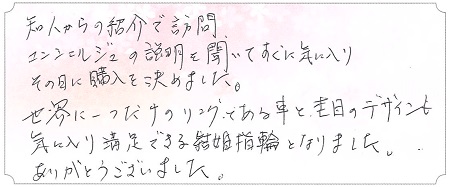 知人からの紹介で訪問。
コンシェルジュの説明を聞いてすぐに気に入り
その日に購入を決めました。
世界に一つだけのリングである事と、杢目のデザインも
気に入り満足できる結婚指輪となりました。
ありがとうございました。